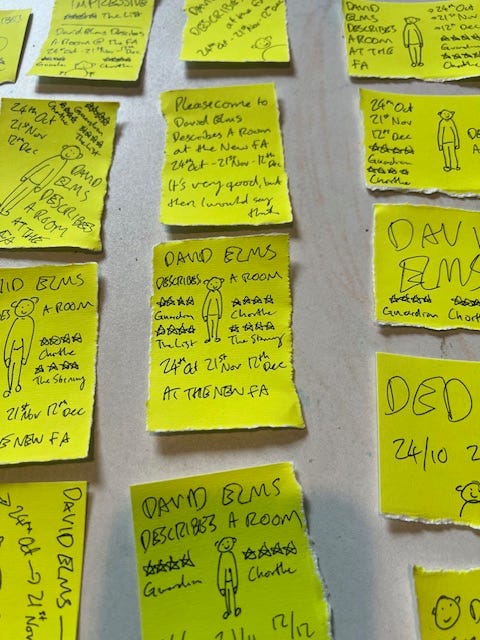 IMPRESSIVE
The List
David Elms Describes
A Room @ The FA
24th Oct - 21st Nov - 12th Dec
Guardian Chortle
DESCRIBES
at the
24th Oct - 21st Nov 12th
DAVID
ELMS
DESCRIBES
A ROOM
AT THE
FA
24th Oct
21st Nov
12th Dec
Guardian
Chortle
24th Oct
21st Nov
12th Dec
Guardian
The List
DAVID
ELMS
DESCRIBES
A ROOM
AT THE
FA
Please come to
David Elms
Describes A Room
at the New FA
24th Oct - 21st Nov - 12th Dec
It's very good, but
then I would say
that
24th Oct
21st Nov
12th Dec
Guardian
Chortle
DAV
ELMS
Guardian Chort
VID ELMS
BES A ROOM
Chortle
The Skinny
21st Nov 12th Dec
E NEW FA
DAVID ELMS
DESCRIBES A ROOM
Guardian Chortle
The List The Skinny
24th Oct 21st Nov 12th Dec
AT THE NEW FA
DED
24/10 2
DAVID ELMS
24th Oct → 21st Nov
DAVID ELMS
DESCRIBES A ROOM
Guardian Chortle
12/12
D